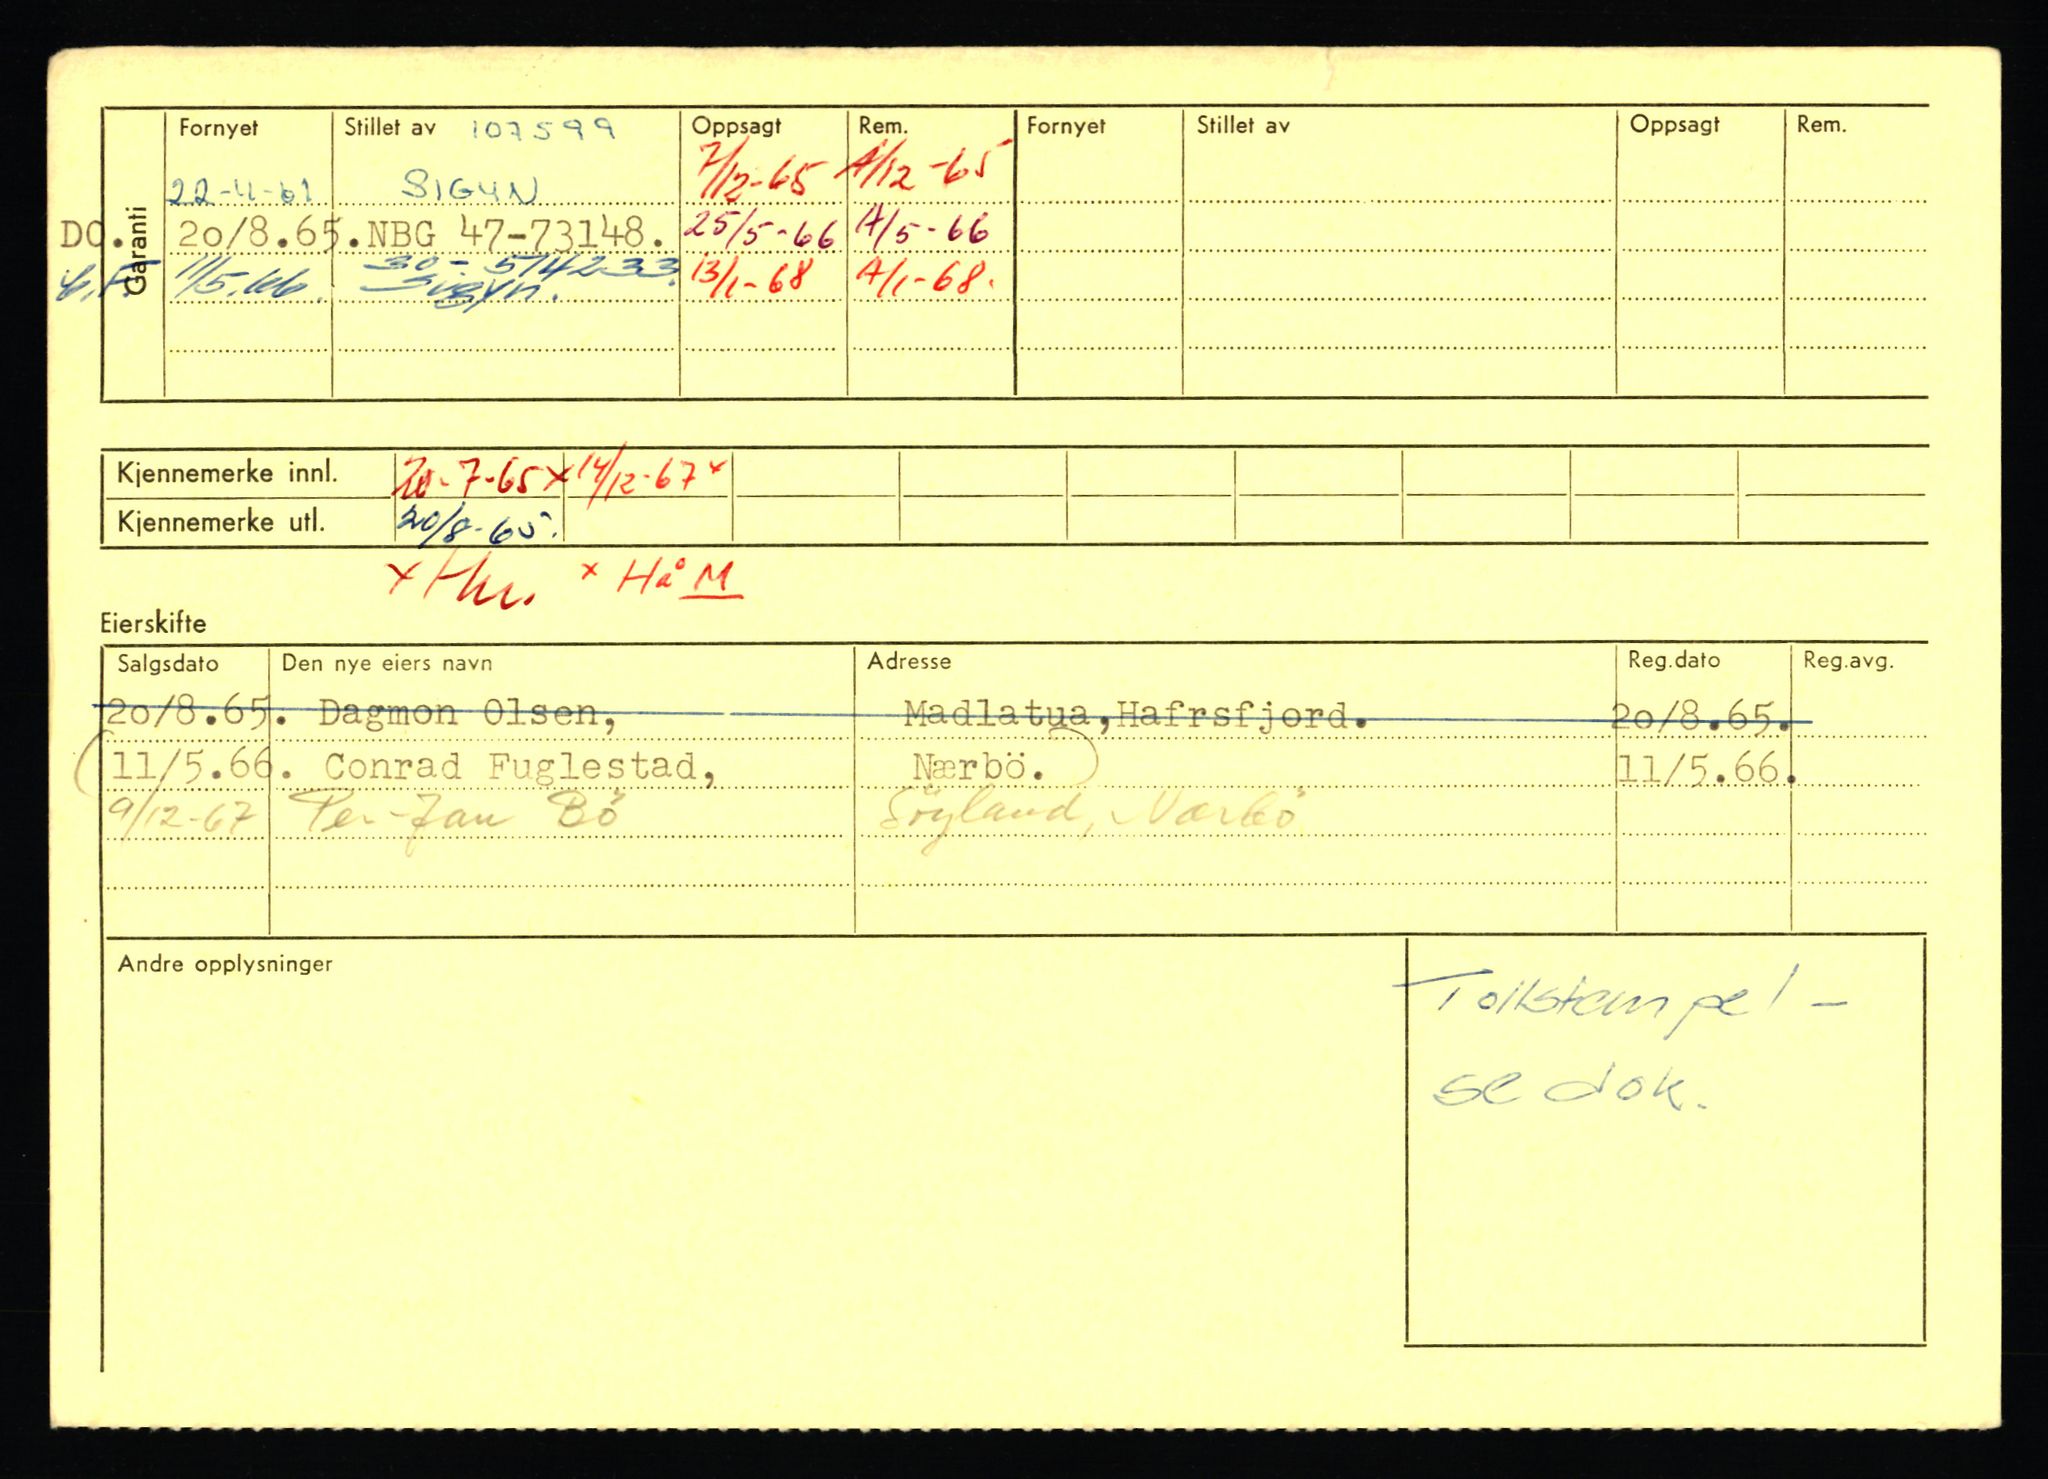 Garanti
Fornyet Stillet av 107599 Oppsagt Rem. Fornyet Stillet av Oppsagt Rem.
22-11-61 SIGYN 7/12-65 A/12-65
DO. 20/8.65. NBG 47-73148. 25/5-66 A/5-66
C.F. 11/5.66. 30-514233. Sigyn. 13/1-68 A/1-68.
Kjennemerke innl. 20-7-65 x 14/12-67 x
Kjennemerke utl. 20/8-65.
x x Hå M
Eierskifte
Salgsdato Den nye eiers navn Adresse Reg.dato Reg.avg.
20/8.65. Dagmon Olsen, Madlatua,Hafrsfjord. 20/8.65.
(11/5.66. Conrad Fuglestad, Nærbö.) 11/5.66.
9/12-67 Per-Jan Bö Söyland, Nærbö
Andre opplysninger
Tollstempel -
se dok.